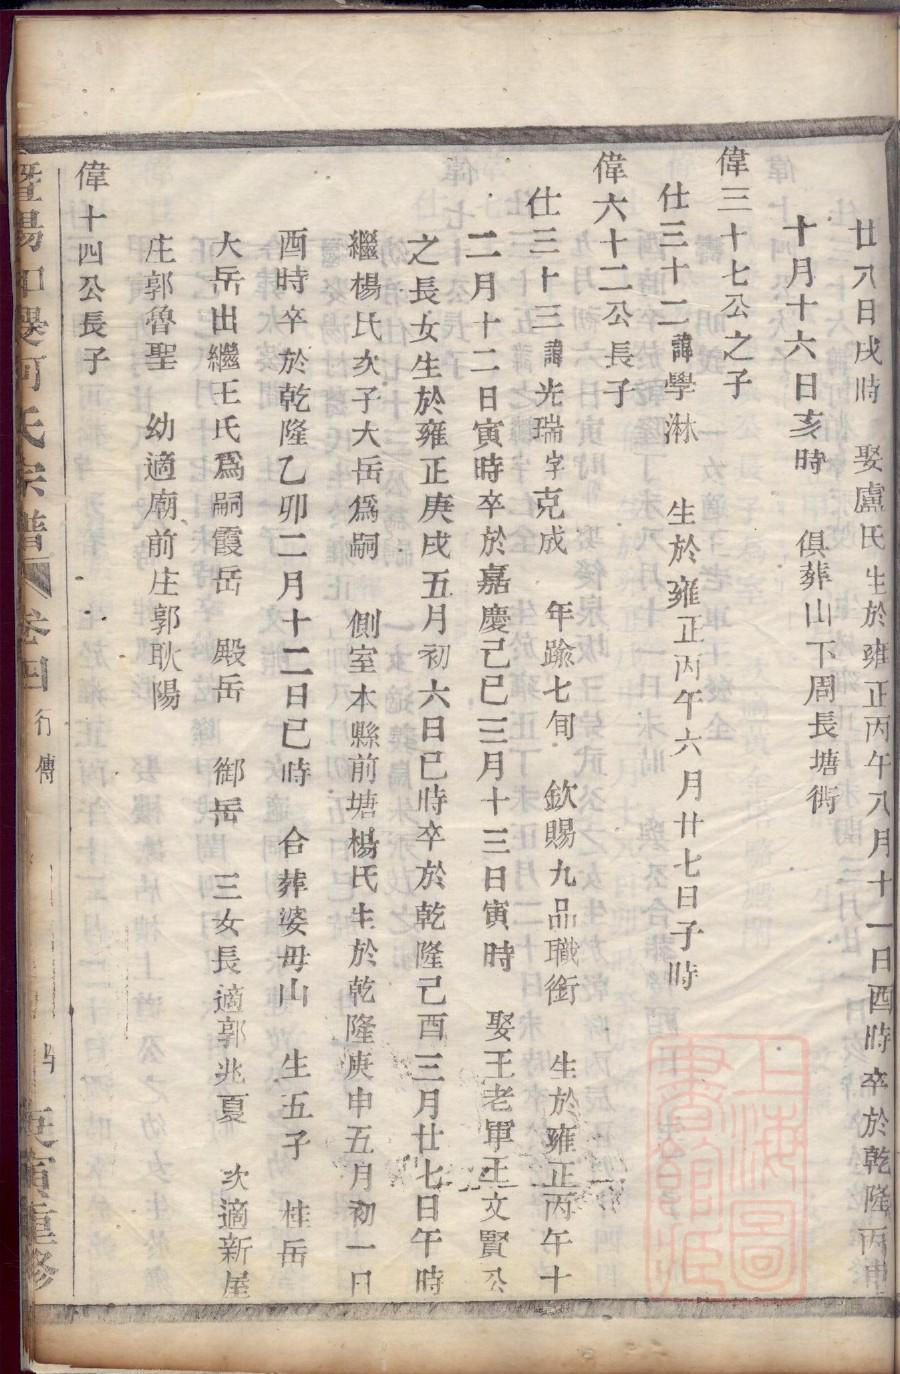 廿八日戌時　娶盧氏生於雍正丙午八月十一日酉時卒於乾隆丙申
十月十六日亥時　俱葬山下周長塘衖
偉三十七公之子
仕三十二諱學淋　生於雍正丙午六月廿七日子時
偉六十二公長子
仕三十三諱光瑞字克成　年踰七旬　欽賜九品職銜　生於雍正丙午十
二月十二日寅時卒於嘉慶己巳三月十三日寅時　娶王老軍王文賢公
之長女生於雍正庚戌五月初六日巳時卒於乾隆己酉三月廿七日午時
繼楊氏次子大岳爲嗣　側室本縣前塘楊氏生於乾隆庚申五月初一日
酉時卒於乾隆乙卯二月十二日巳時　合葬婆毋山　生五子　桂岳
大岳出繼王氏爲嗣霞岳　殿岳　御岳　三女長適郭兆夏　次適新屋
庄郭魯聖　幼適廟前庄郭耿陽
偉十四公長子
暨陽 何氏宗譜　卷四　行傳　庚寅重修
上海圖書館藏